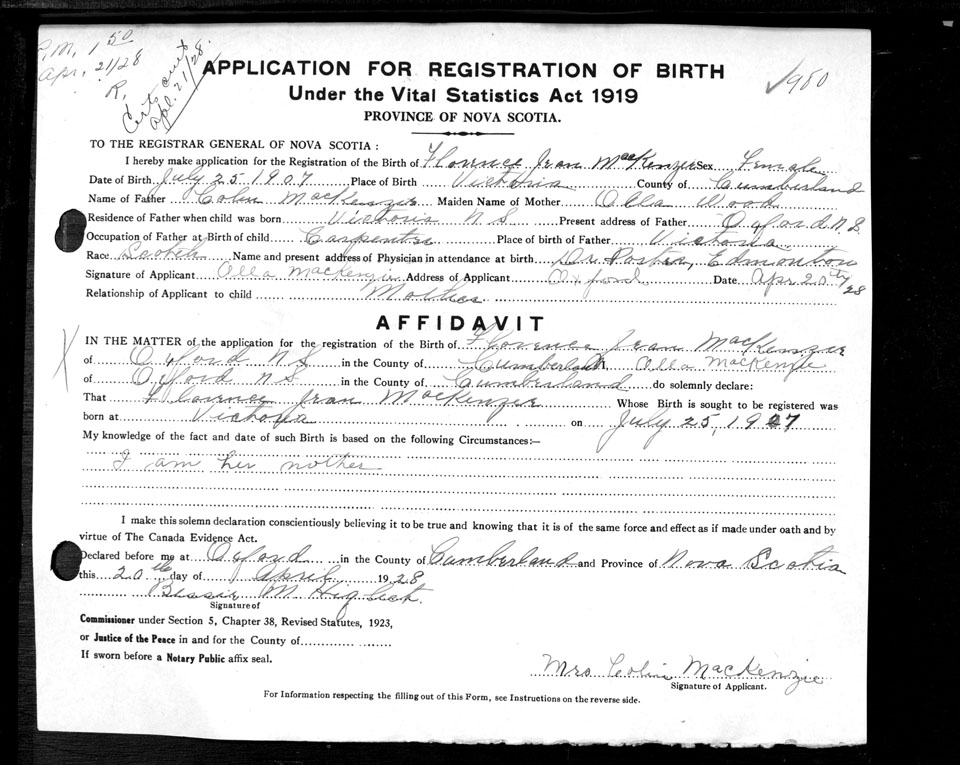 P.M. 1 50
Apr. 21/28
R.
Cert. out
Apl. 21/28.
1980
APPLICATION FOR REGISTRATION OF BIRTH
Under the Vital Statistics Act 1919
PROVINCE OF NOVA SCOTIA.
TO THE REGISTRAR GENERAL OF NOVA SCOTIA :
I hereby make application for the Registration of the Birth of Florence Jean MacKenzie Sex Female
Date of Birth July 25 1907 Place of Birth Victoria County of Cumberland
Name of Father Colin MacKenzie Maiden Name of Mother Olla Wood
Residence of Father when child was born Victoria N S Present address of Father Oxford N.S.
Occupation of Father at Birth of child Carpenter Place of birth of Father Victoria
Race Scotch Name and present address of Physician in attendance at birth Dr. Foster, Edmonton
Signature of Applicant Olla MacKenzie Address of Applicant Oxford Date Apr 20th/28
Relationship of Applicant to child Mother
AFFIDAVIT
IN THE MATTER of the application for the registration of the Birth of Florence Jean MacKenzie
of Oxford N S in the County of Cumberland I, Olla MacKenzie
of Oxford N S in the County of Cumberland do solemnly declare:
That Florence Jean MacKenzie Whose Birth is sought to be registered was
born at Victoria on July 25, 1907
My knowledge of the fact and date of such Birth is based on the following Circumstances:—
I am her mother
I make this solemn declaration conscientiously believing it to be true and knowing that it is of the same force and effect as if made under oath and by
virtue of The Canada Evidence Act.
Declared before me at Oxford in the County of Cumberland and Province of Nova Scotia
this 20th day of April 1928
Bessie M
Signature of
Commissioner under Section 5, Chapter 38, Revised Statutes, 1923,
or Justice of the Peace in and for the County of
If sworn before a Notary Public affix seal.
Mrs Colin MacKenzie
Signature of Applicant.
For Information respecting the filling out of this Form, see Instructions on the reverse side.